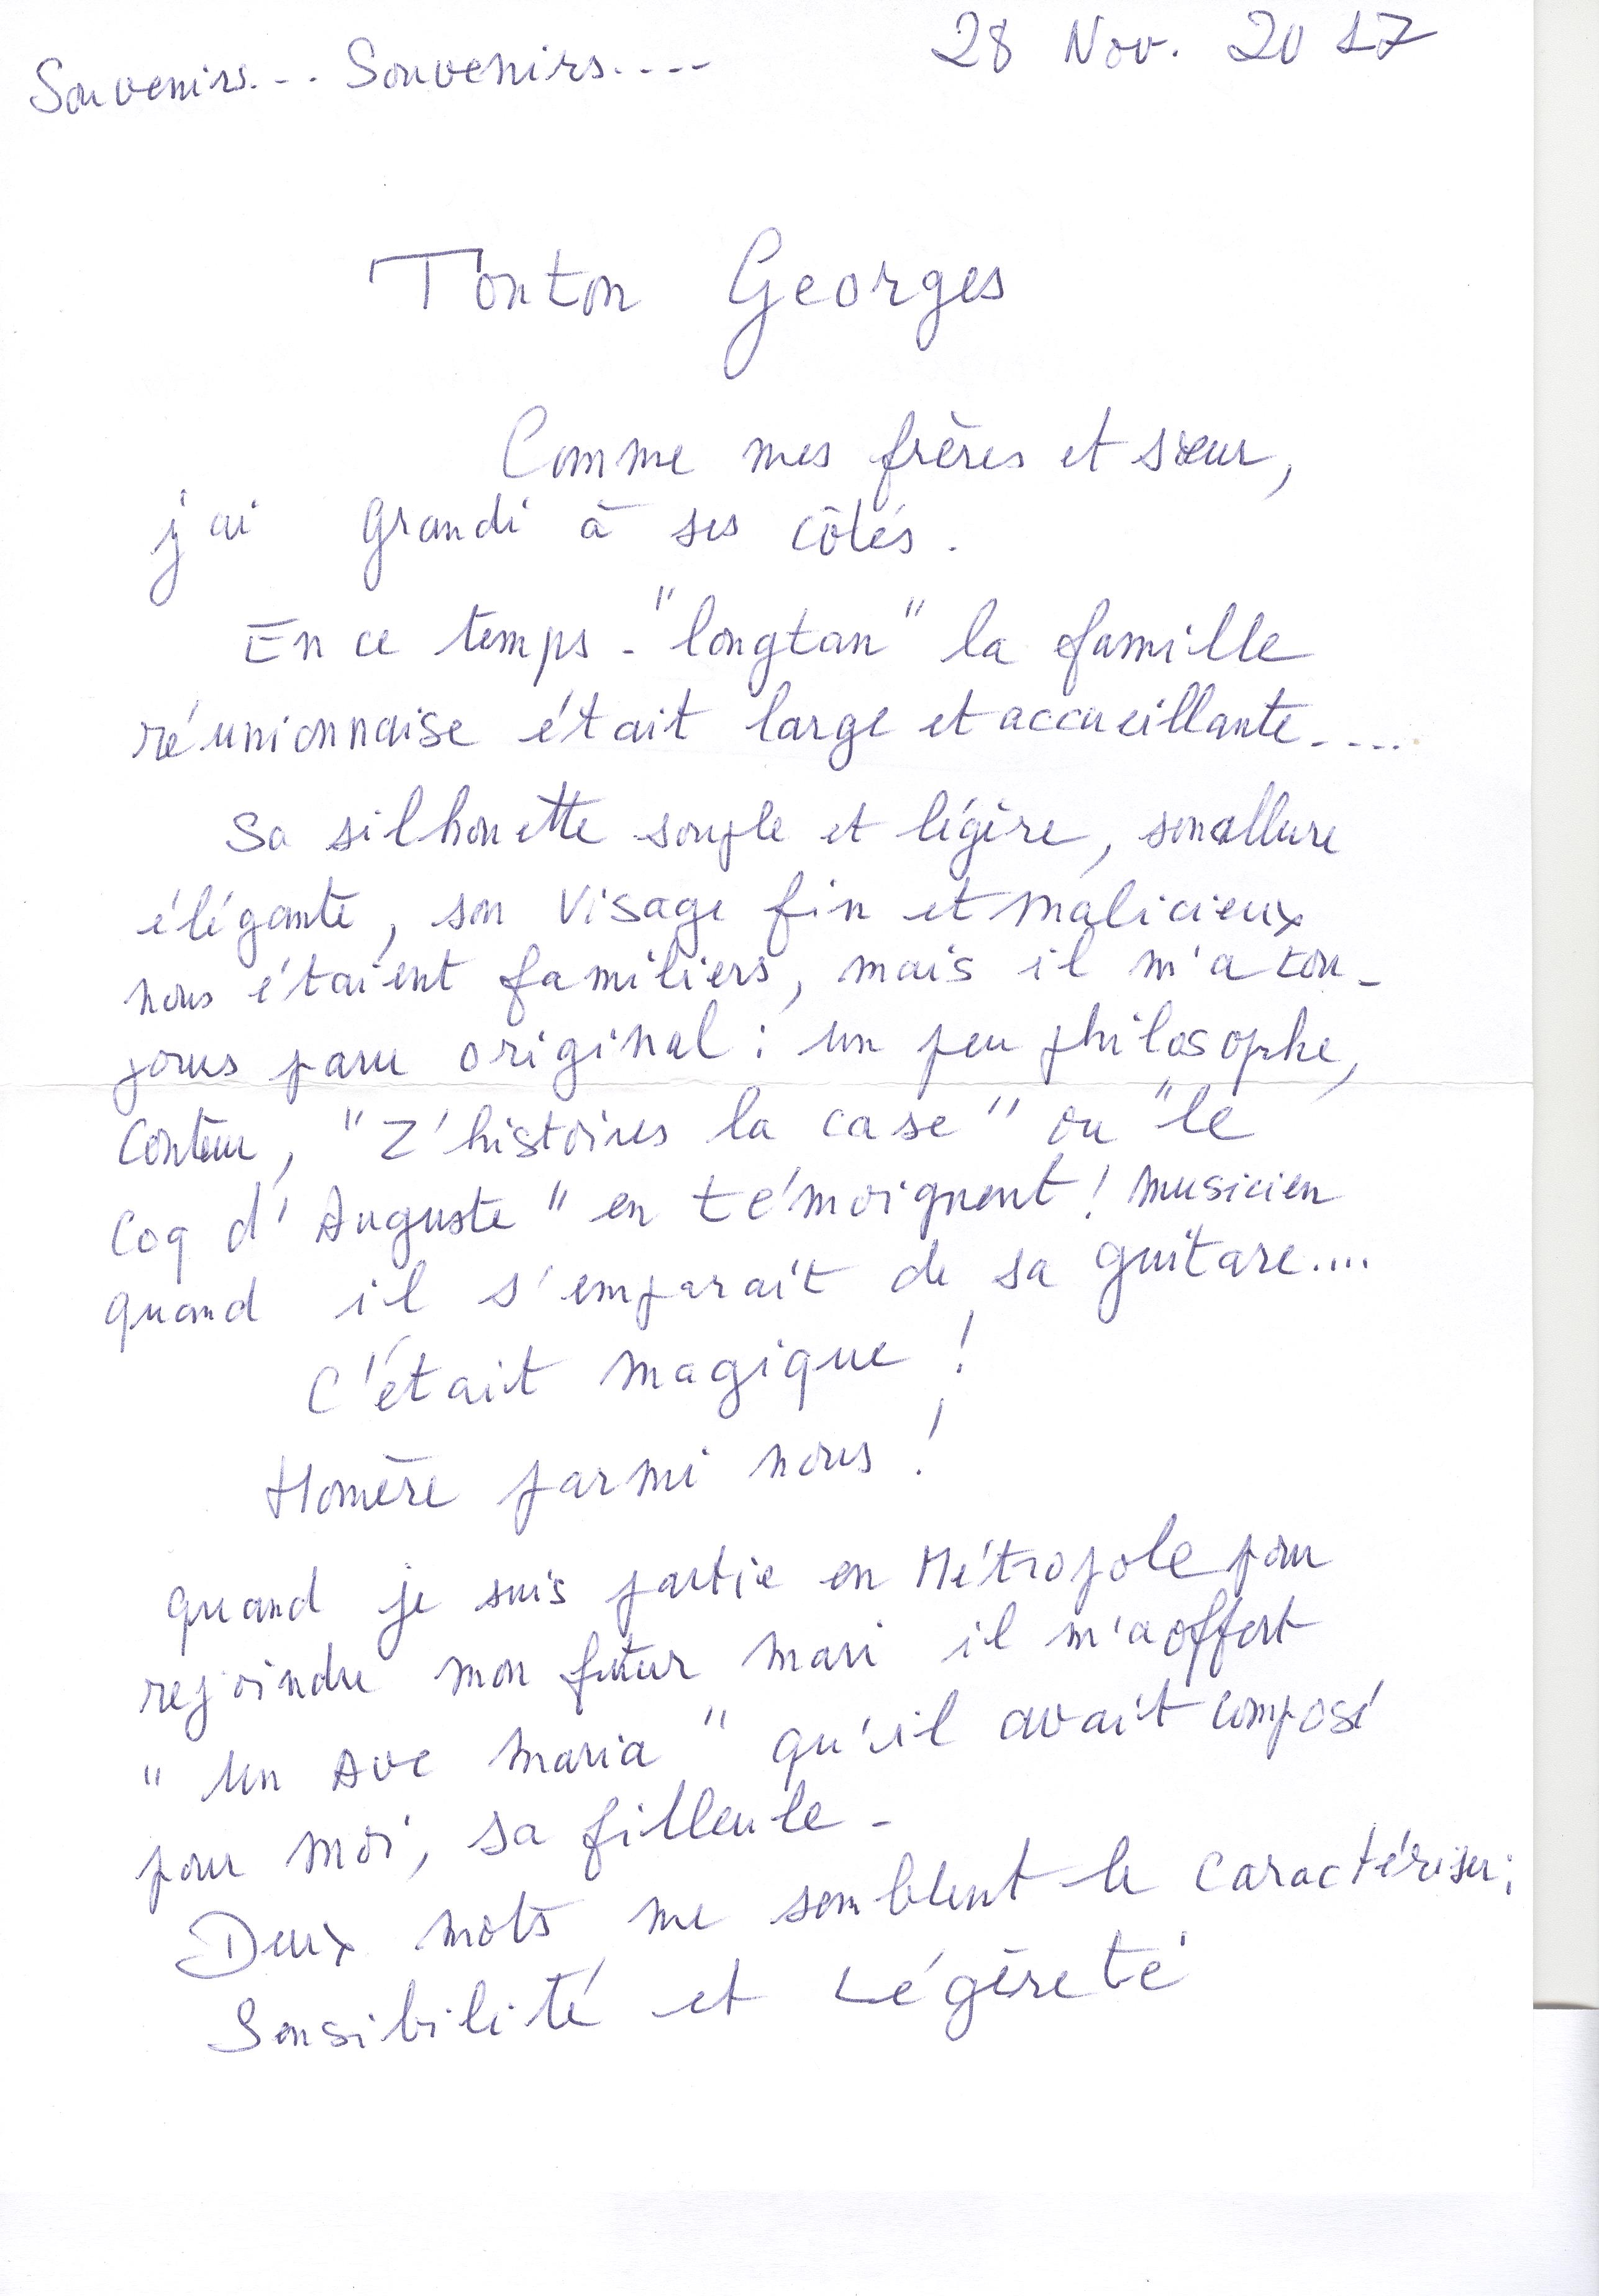 Souvenirs... Souvenirs.... 28 Nov. 2017
Tonton Georges
Comme mes frères et sœur,
j'ai grandi à ses côtés.
En ce temps - "longtan" la famille
réunionnaise était large et accueillante.....
Sa silhouette souple et légère, son allure
élégante, son visage fin et malicieux
nous étaient familiers, mais il m'a tou-
jours paru original : un peu philosophe,
Conteur, "Z'histoires la case" ou "le
Coq d'Auguste" en témoignent ! musicien
quand il s'emparait de sa guitare....
C'était magique !
Homère parmi nous !
Quand je suis partie en Métropole pour
rejoindre mon futur mari il m'a offert
"Un Ave Maria" qu'il avait composé
pour moi, sa filleule -
Deux mots me semblent le caractériser :
Sensibilité et Légèreté